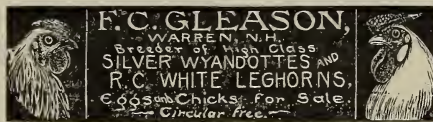 F.C. GLEASON,
WARREN, N.H.
Breeder of High Class
SILVER WYANDOTTES AND
R.C. WHITE LEGHORNS,
Eggs and Chicks for Sale
Circular free.